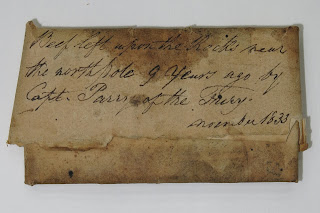 Beef left upon the Rocks near
the north pole 9 Years ago by
Capt. Parry of the Fury.
november 1833